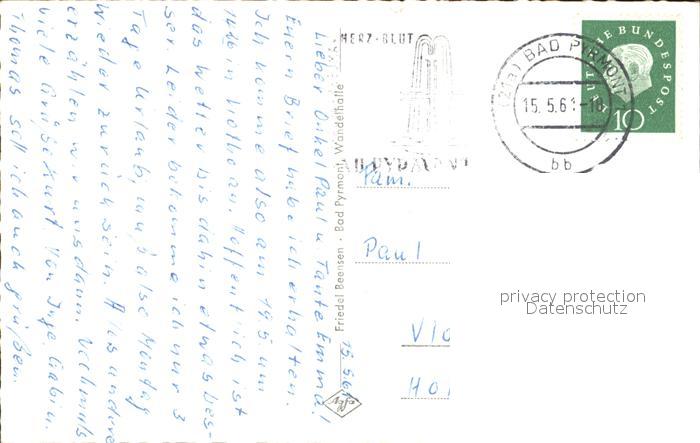 15.5.61
Lieber Onkel Paul u Tante Emma!
Euern Brief habe ich erhalten.
Ich komme also am 19.5 um
in Holborn. Hoffentlich ist
das Wetter bis dahin etwas bes-
ser. Leider bekomme ich nur 3
Tage Urlaub, muß also Montag
wieder zurück sein. Alles andere
erzählen wir uns dann. Nochmals
viele Grüße Kurt
Thomas soll ich auch grüßen.
Friedel Beensen · Bad Pyrmont, Wandelhalle
HERZ·BLUT
BAD PYRMONT
BAD PYRMONT
15.5.61-18
bb
DEUTSCHE BUNDESPOST
10
Fam.
Paul
Vlo
Hol
privacy protection
Datenschutz